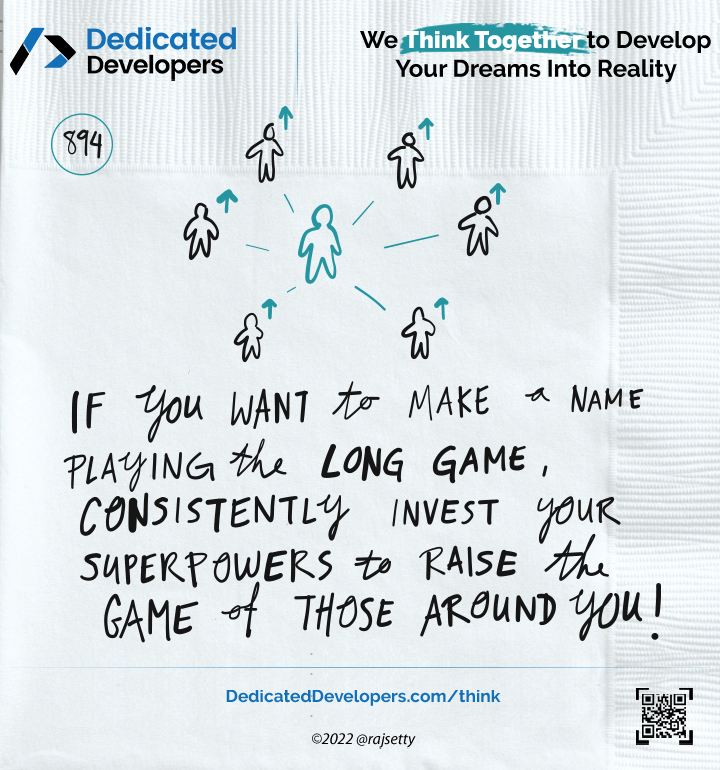 Dedicated
Developers
We Think Together to Develop
Your Dreams Into Reality
894
IF YOU WANT to MAKE a NAME
PLAYING the LONG GAME,
CONSISTENTLY INVEST YOUR
SUPERPOWERS to RAISE the
GAME of THOSE AROUND YOU!
DedicatedDevelopers.com/think
©2022 @rajsetty